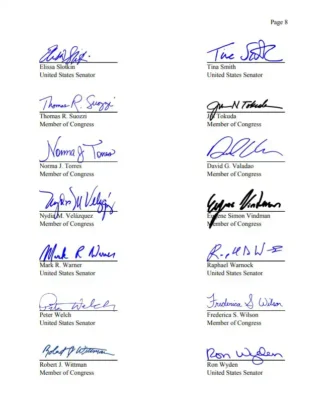 Page 8
Elissa Slotkin
United States Senator
Tina Smith
United States Senator
Thomas R. Suozzi
Thomas R. Suozzi
Member of Congress
Jill Tokuda
Member of Congress
Norma J Torres
Norma J. Torres
Member of Congress
David G. Valadao
Member of Congress
Nydia M. Velázquez
Member of Congress
Eugene Vindman
Eugene Simon Vindman
Member of Congress
Mark R Warner
Mark R. Warner
United States Senator
Raphael Warnock
United States Senator
Peter Welch
Peter Welch
United States Senator
Frederica S. Wilson
Frederica S. Wilson
Member of Congress
Robert J Wittman
Robert J. Wittman
Member of Congress
Ron Wyden
Ron Wyden
United States Senator